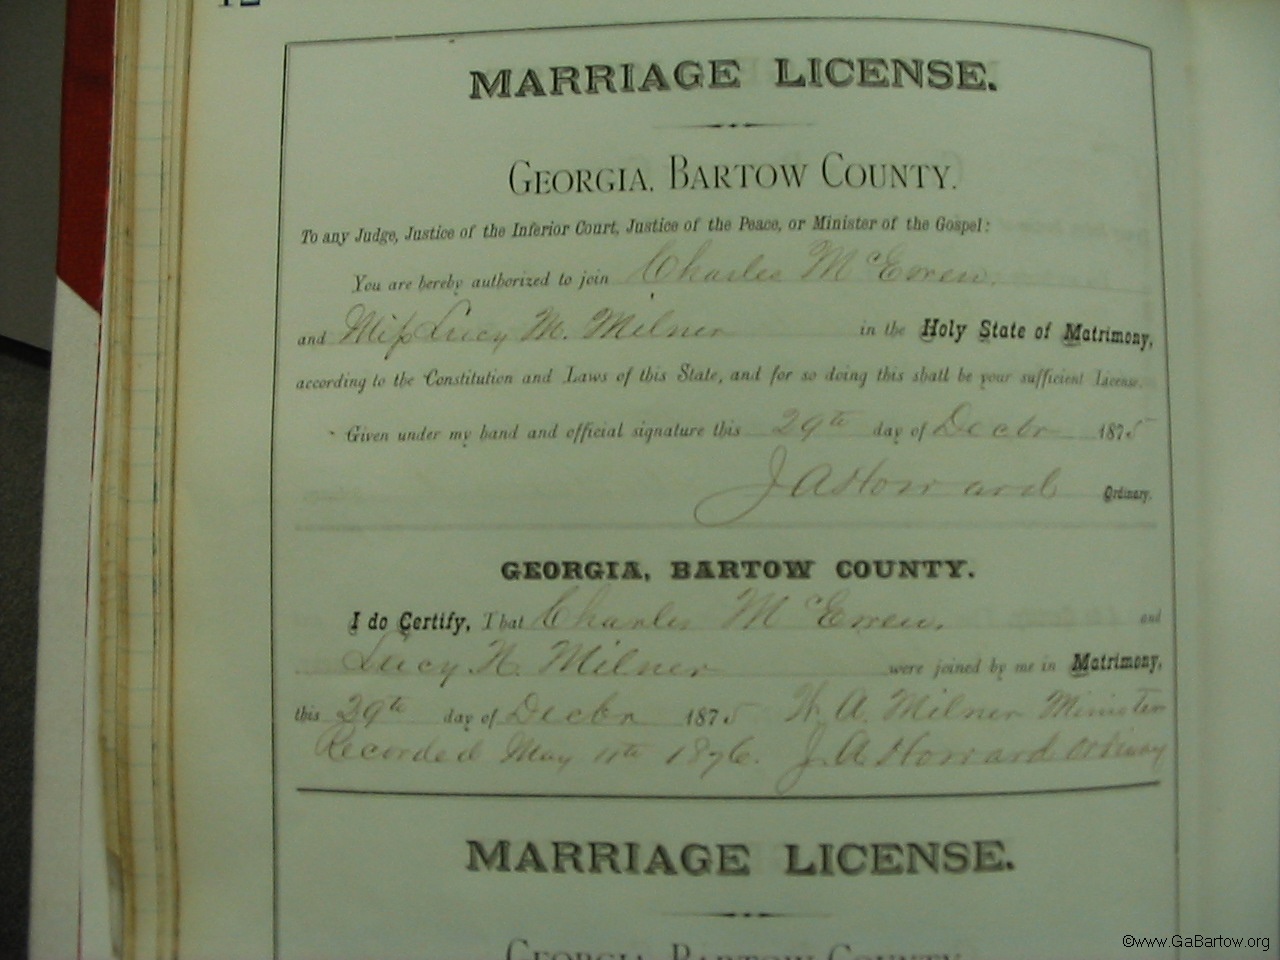 12
MARRIAGE LICENSE.
GEORGIA, BARTOW COUNTY.
To any Judge, Justice of the Inferior Court, Justice of the Peace, or Minister of the Gospel:
You are hereby authorized to join Charles McEwen.
and Miss Lucy M. Milner in the Holy State of Matrimony,
according to the Constitution and Laws of this State, and for so doing this shall be your sufficient License.
Given under my hand and official signature this 29th day of Decbr 1875
J A Howard Ordinary.
GEORGIA, BARTOW COUNTY.
I do Certify, That Charles McEwen. and
Lucy N. Milner were joined by me in Matrimony,
this 29th day of Decbr 1875 W. A. Milner Minister
Recorded May 11th 1876. J. A. Howard Ordinary
MARRIAGE LICENSE.
GEORGIA, BARTOW COUNTY.
©www.GaBartow.org